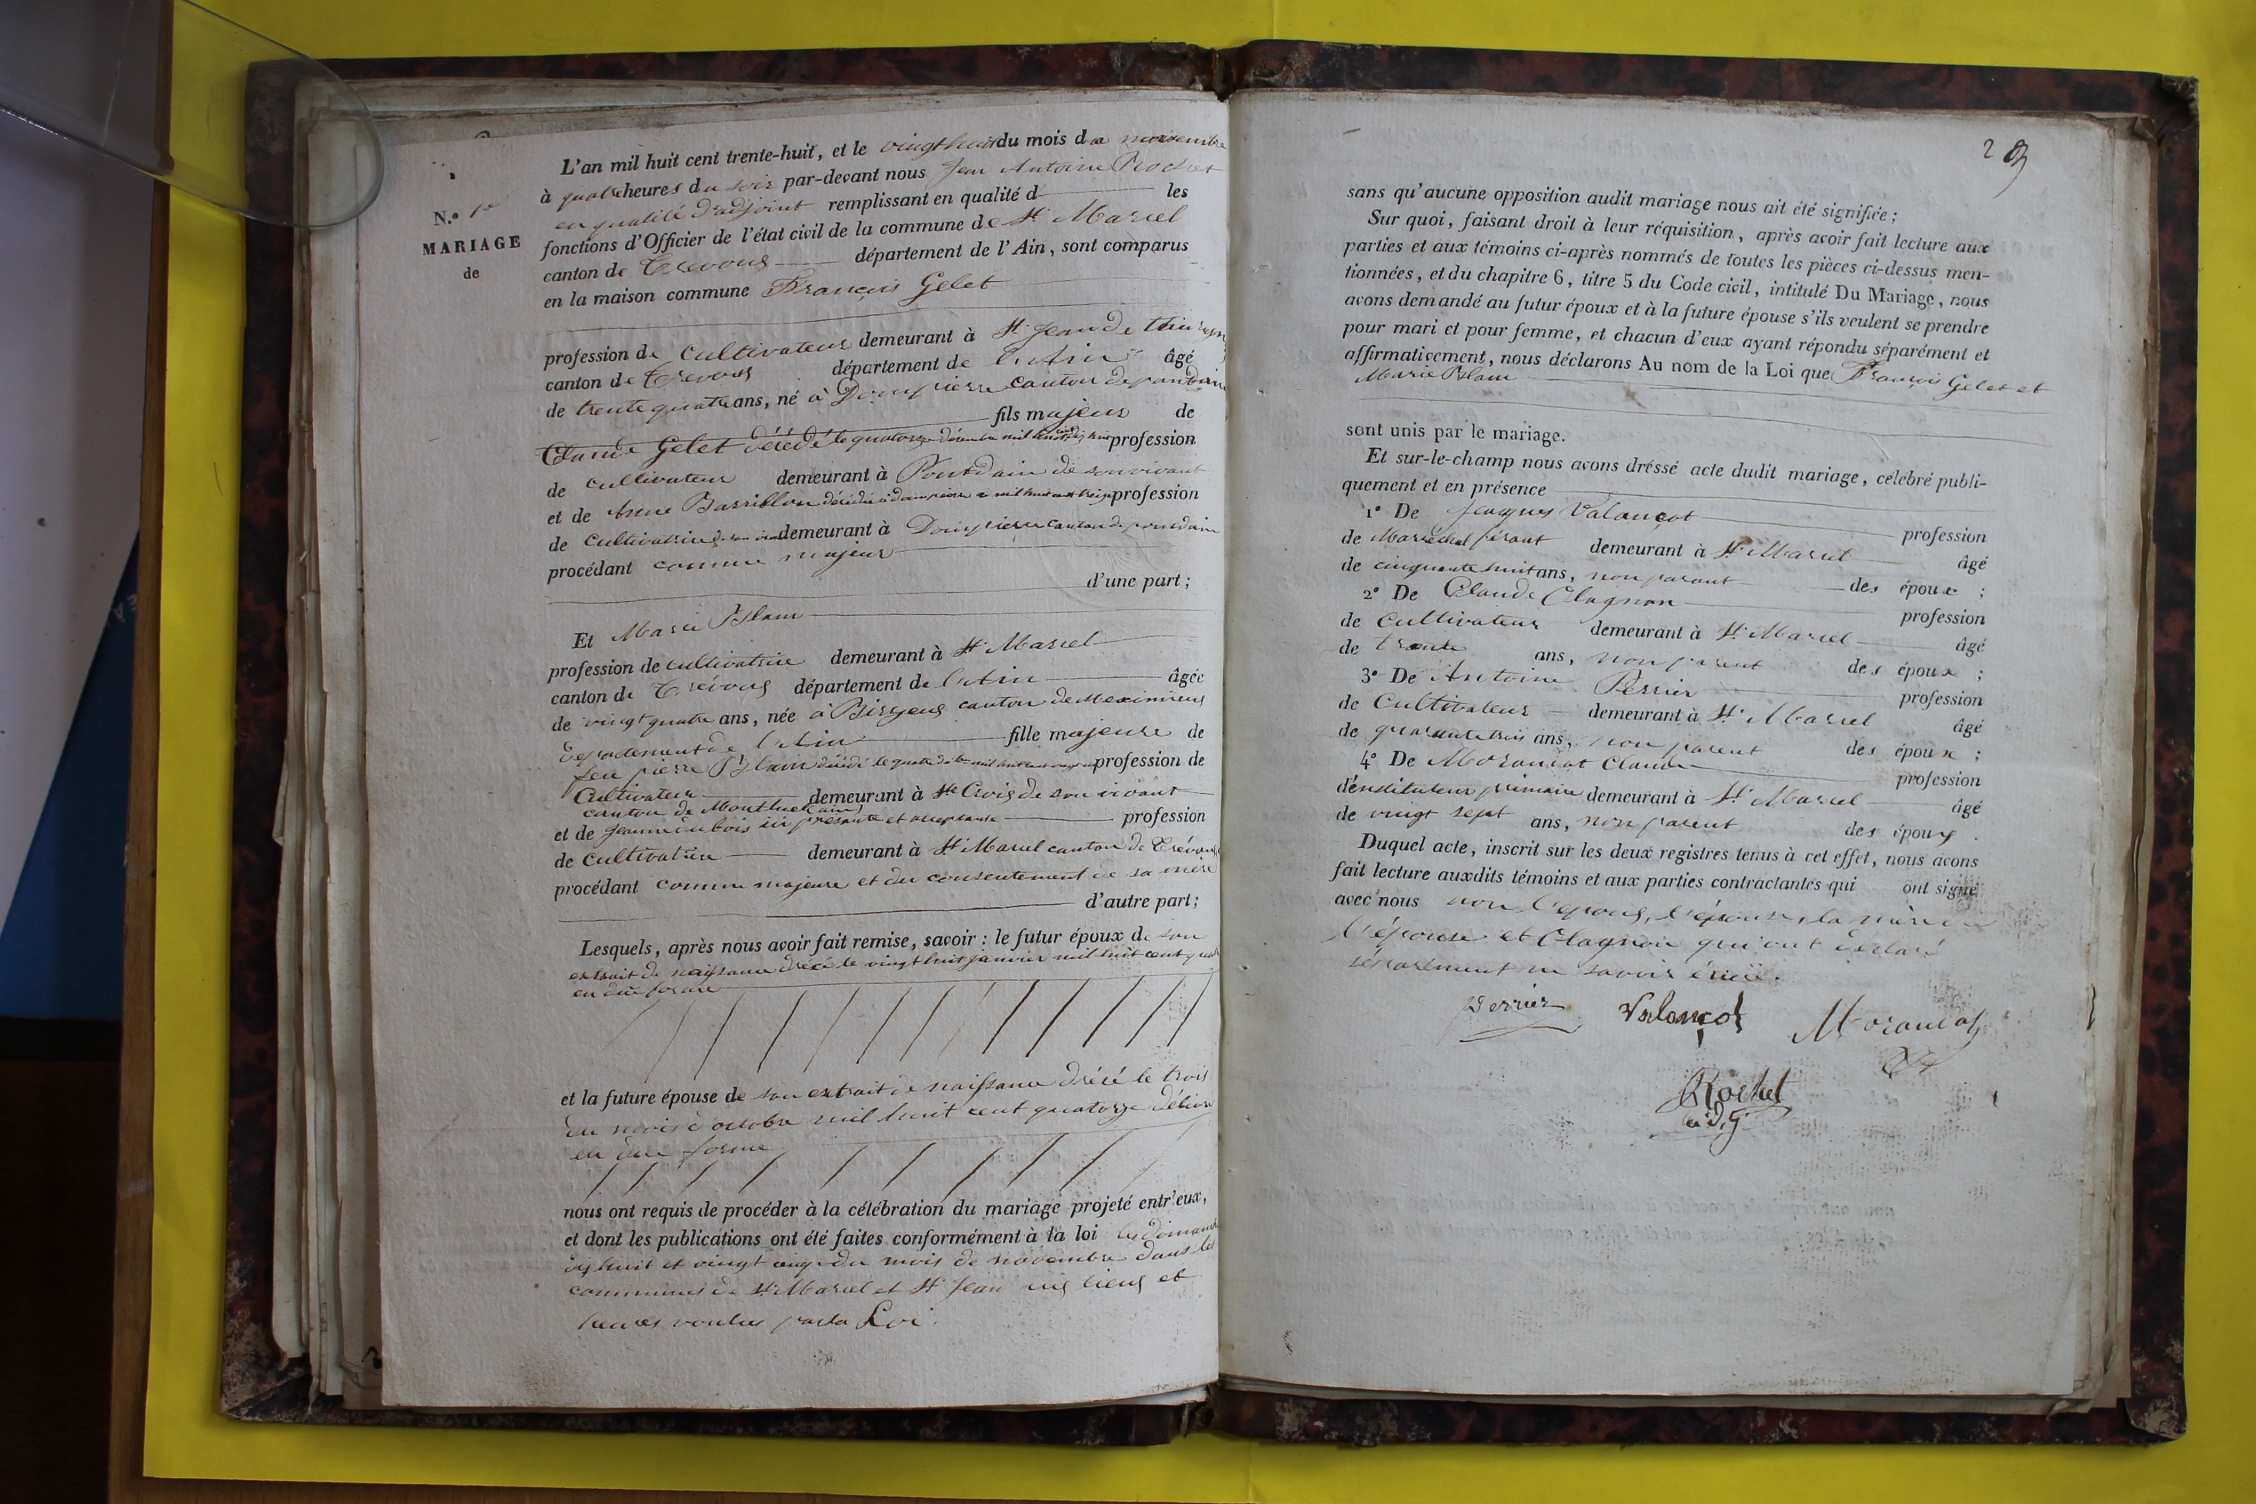 N.º 10
MARIAGE
de
L'an mil huit cent trente-huit, et le vingt huit du mois de novembre
à quatre heures du soir par-devant nous Jean Antoine Rochet
en qualité d'adjoint remplissant en qualité d les
fonctions d'Officier de l'état civil de la commune de St Marcel
canton de Trévoux département de l'Ain, sont comparus
en la maison commune François Gelet
profession de cultivateur demeurant à St Jean de thurigneux
canton de Trevoux département de l'Ain âgé
de trente quatre ans, né à Dompierre canton de pontdain
fils majeur de
Claude Gelet décédé le quatorze décembre mil huit profession
de cultivateur demeurant à Pontdain de son vivant
et de Anne Barrillon décédée à dompierre mil huit cent treize profession
de cultivatrice de son vivant demeurant à Dompierre canton de pontdain
procédant comme majeur
d'une part;
Et Marie Blain
profession de cultivatrice demeurant à St Marcel
canton de Trévoux département de l'Ain âgée
de vingt quatre ans, née à Birieux canton de Meximieux
département de l'Ain fille majeure de
feu pierre Blain décédé le quatre profession de
Cultivateur demeurant à Ste Croix de son vivant
canton de Montluel (ain)
et de Jeanne dubois ici présente et acceptante profession
de cultivatrice demeurant à St Marcel canton de Trévoux
procédant comme majeure et du consentement de sa mère
d'autre part;
Lesquels, après nous avoir fait remise, savoir : le futur époux de son
extrait de naissance drécé le vingt huit janvier mil huit cent quatre
en due forme
et la future épouse de son extrait de naissance drécé le trois
du mois d'octobre mil huit cent quatorze délivré
en due forme
nous ont requis de procéder à la célébration du mariage projeté entr'eux,
et dont les publications ont été faites conformément à la loi les dimanches
dix huit et vingt cinq du mois de novembre dans les
communes de St Marcel et St Jean aux lieux et
heures voulues par la Loi.
2
sans qu'aucune opposition audit mariage nous ait été signifiée;
Sur quoi, faisant droit à leur réquisition, après avoir fait lecture aux
parties et aux témoins ci-après nommés de toutes les pièces ci-dessus men-
tionnées, et du chapitre 6, titre 5 du Code civil, intitulé Du Mariage, nous
avons demandé au futur époux et à la future épouse s'ils veulent se prendre
pour mari et pour femme, et chacun d'eux ayant répondu séparément et
affirmativement, nous déclarons Au nom de la Loi que François Gelet et
Marie Blain
sont unis par le mariage.
Et sur-le-champ nous avons dréssé acte dudit mariage, célébré publi-
quement et en présence
1º De Jacques Valançot profession
de Maréchal férant demeurant à St Marcel âgé
de cinquante huit ans, non parent des époux ;
2º De Claude Clagnon profession
de Cultivateur demeurant à St Marcel âgé
de trente ans, non parent des époux ;
3º De Antoine Perrier profession
de Cultivateur demeurant à St Marcel âgé
de quarante trois ans, non parent des époux ;
4º De Morandat Claude profession
d'énstituteur primaire demeurant à St Marcel âgé
de vingt sept ans, non parent des époux.
Duquel acte, inscrit sur les deux registres tenus à cet effet, nous avons
fait lecture auxdits témoins et aux parties contractantes qui ont signé
avec nous non l'époux, l'épouse, la mère de
l'épouse et Clagnon qui ont déclaré
séparément ne savoir écrire.
Perrier Valançot Morandat
Rochet
adj